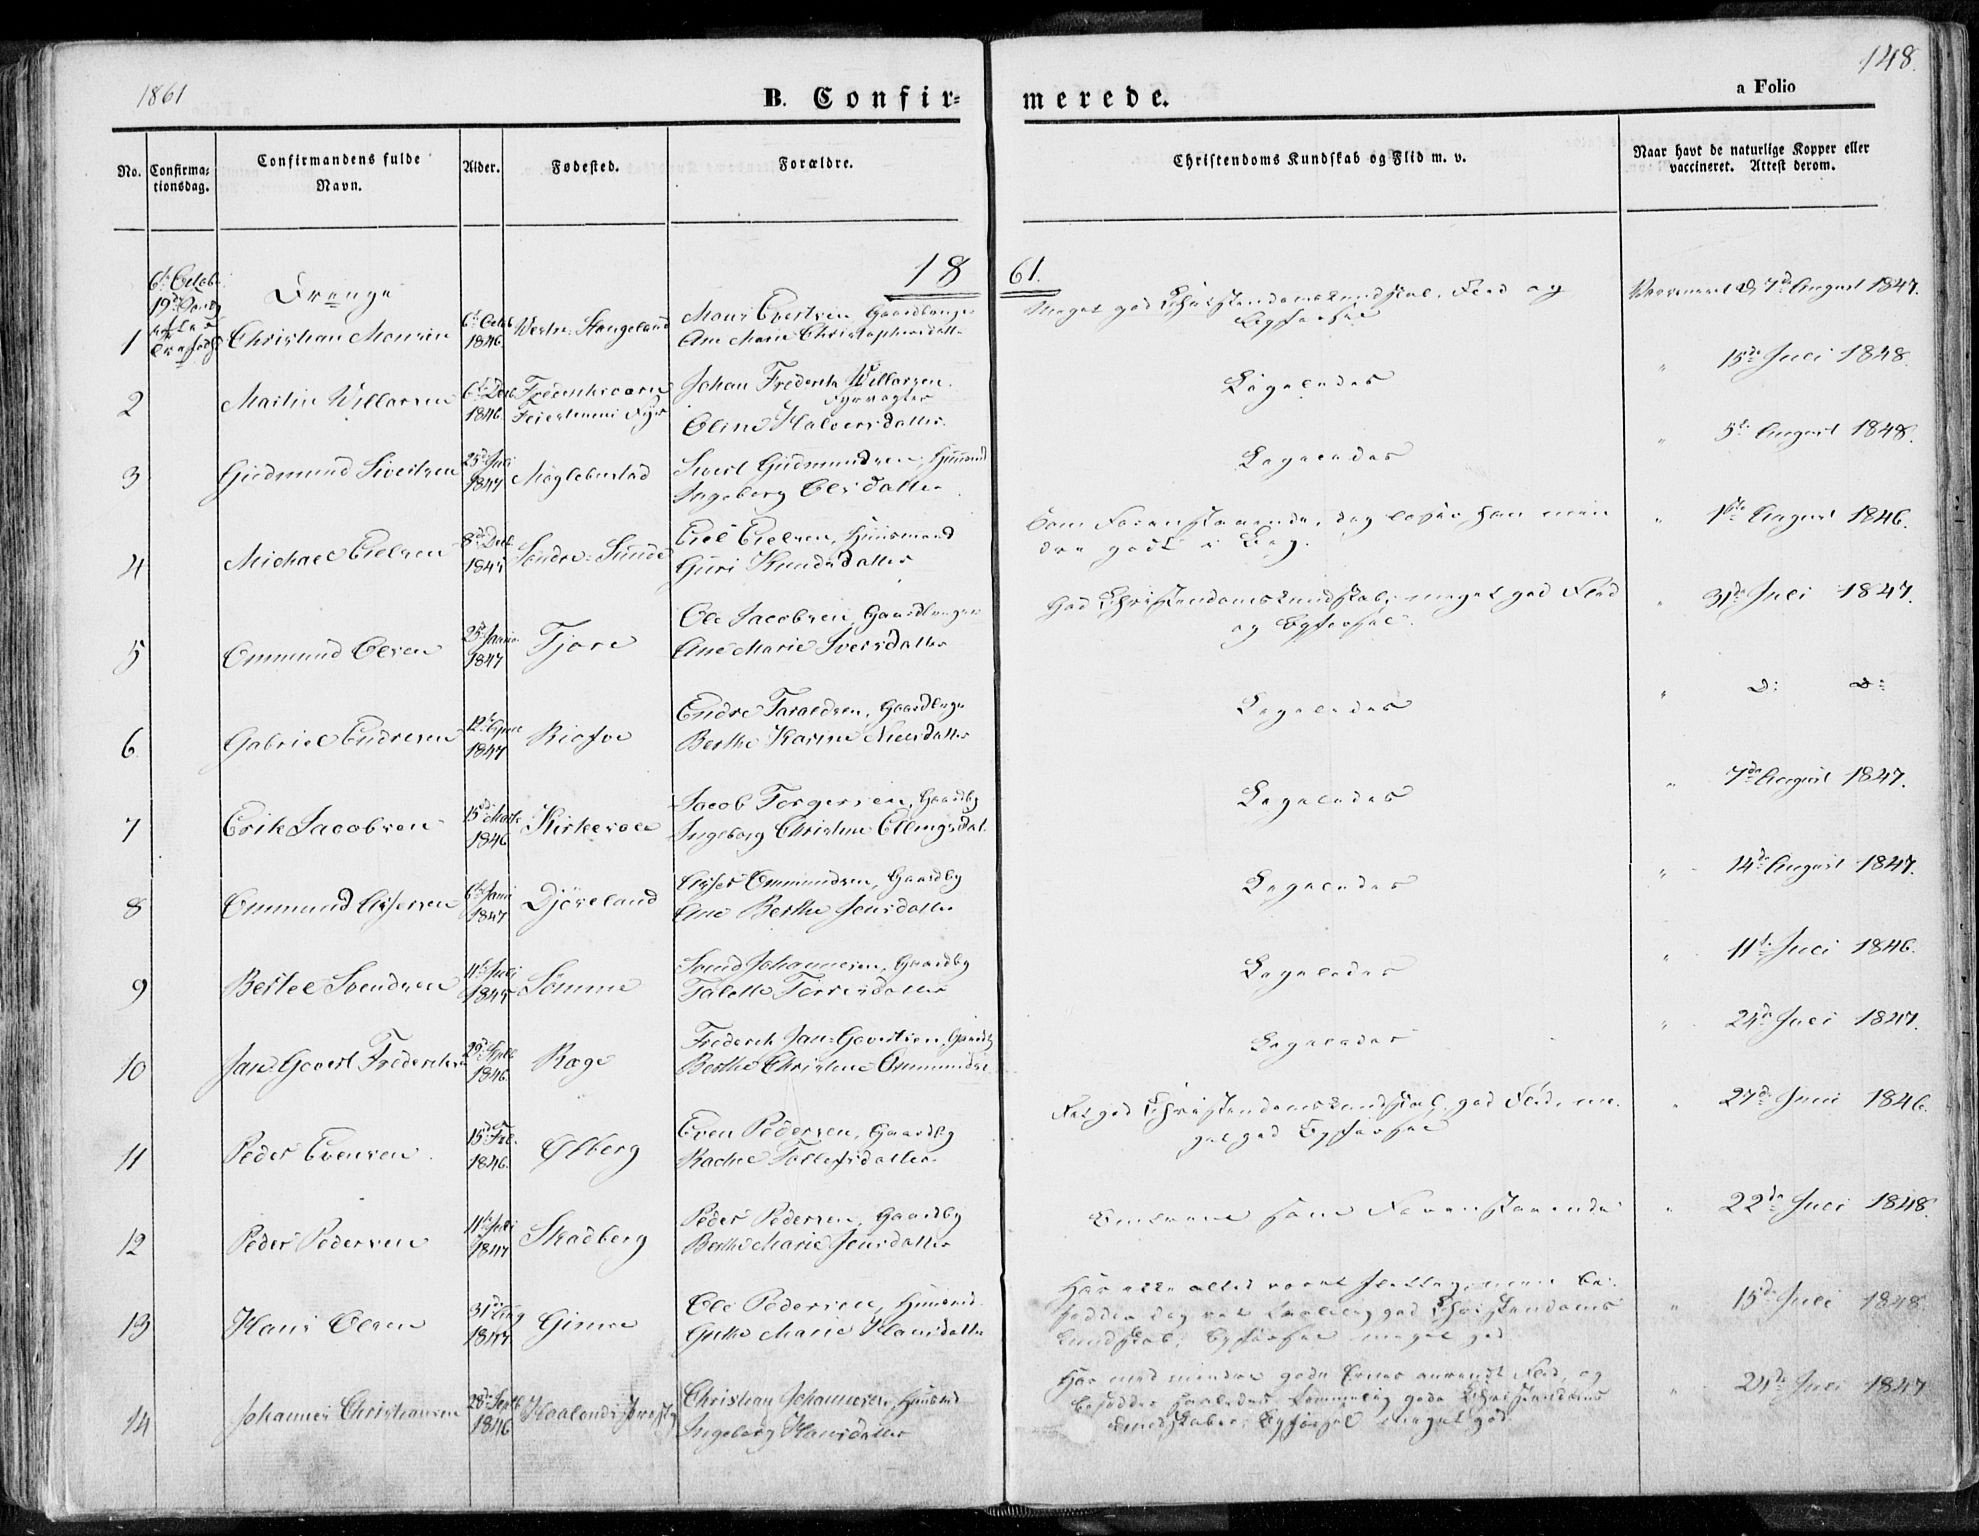 1861
148.
B. Confir=
merede.
a Folio
No.
Confirma=
tionsdag.
Confirmandens fulde
Navn.
Alder.
Fødested.
Forældre.
Christendoms Kundskab og Flid m. v.
Naar havt de naturlige Kopper eller
vaccineret. Attest derom.
18 61.
6te Octob.
19de
Drenge
1 Christian Monsen 6te Octob 1846 Vestre Stangeland
Mons Evertsen Gaardbruger
Ane Marie Christophersdatter
Meget god Christendomskundskab, Flid og
Opførsel
Vaccineret d. 7de August 1847.
2 Martin Willassen 6te Decb 1846
Johan Frederik Willassen.
Fyrvogter
Oline Halvorsdatter.
Ligeledes
" 15de Juli 1848.
3 Gudmund Sivertsen 25de Juli 1847 Møglebustad
Sivert Gudmundsen, Husmand
Ingeborg Olsdatter
Ligeledes
" 5te August 1848.
4 Michael Eielsen 8de Decb 1845 Søndre Sunde
Eiel Eielsen, Huusmand
Guri Knudsdatter
Som Foranstaaende, dog læser han min
dre godt i Bog.
" 1ste August 1846.
5 Ommund Olsen 25de Januar 1847 Tjore
Ole Jacobsen, Gaardbruger
Ane Marie Iversdatter
God Christendomskundskab, meget god Flid
og Opførsel.
" 31te Juli 1847.
6 Gabriel Endresen 12te April 1847
Endre Taraldsen, Gaardbruger
Berthe Karine Nielsdatter
Ligeledes
" D: D:
7 Erik Jacobsen 15de Marts 1846
Jacob Torgersen, Gaardbr
Ingeborg Christine Ellingsdat.
Ligeledes
" 7de August 1847.
8 Ommund Asser​sen 6te Juni 1847 Djøseland
Asser Ommundsen, Gaardbr
Ane Berthe Jensdatter
Ligeledes
" 14de August 1847.
9 Bertel Svendsen 11te Juli 1845 Sømme
Svend Johannesen, Gaardbr
Talette Torresdatter
Ligeledes
" 11te Juli 1846.
10 Jan Govert Fredriksen 29de Septb 1846 Røge
Frederik Jan Govertsen, Gaardb
Berthe Christine Ommundsd
Ligeledes
" 24de Juli 1847.
11 Peder Evensen 15de Feb. 1846. Ølberg
Even Pedersen, Gaardbr
Rachel Tollefsdatter
god Christendomskundskab, god Flid, me
get god Opførsel
" 27de Juni 1846.
12 Peder Pedersen 11te Juli 1847 Skadberg
Peder Pedersen, Gaardbr
Berthe Marie Jensdatter
som Foranstaaende
" 22de Juli 1848.
13 Hans Olsen 31te Aug 1847 Gimre
Ole Pedersen, Husmd.
Gitte Marie Hansdatter
Har ikke altid været flittig, men be
sidder dog ret god Christendoms
kundskab; Opførsel meget god
" 15de Juli 1848.
14 Johannes Christiansen 28de Septb 1846
Christian Johannesen, Husmd
Ingeborg Hansdatter
Har med mindre gode Evner anvendt Flid, og
besidder saaledes temmelig gode Christendoms
kundskaber; Opførsel meget god
" 24de Juli 1847